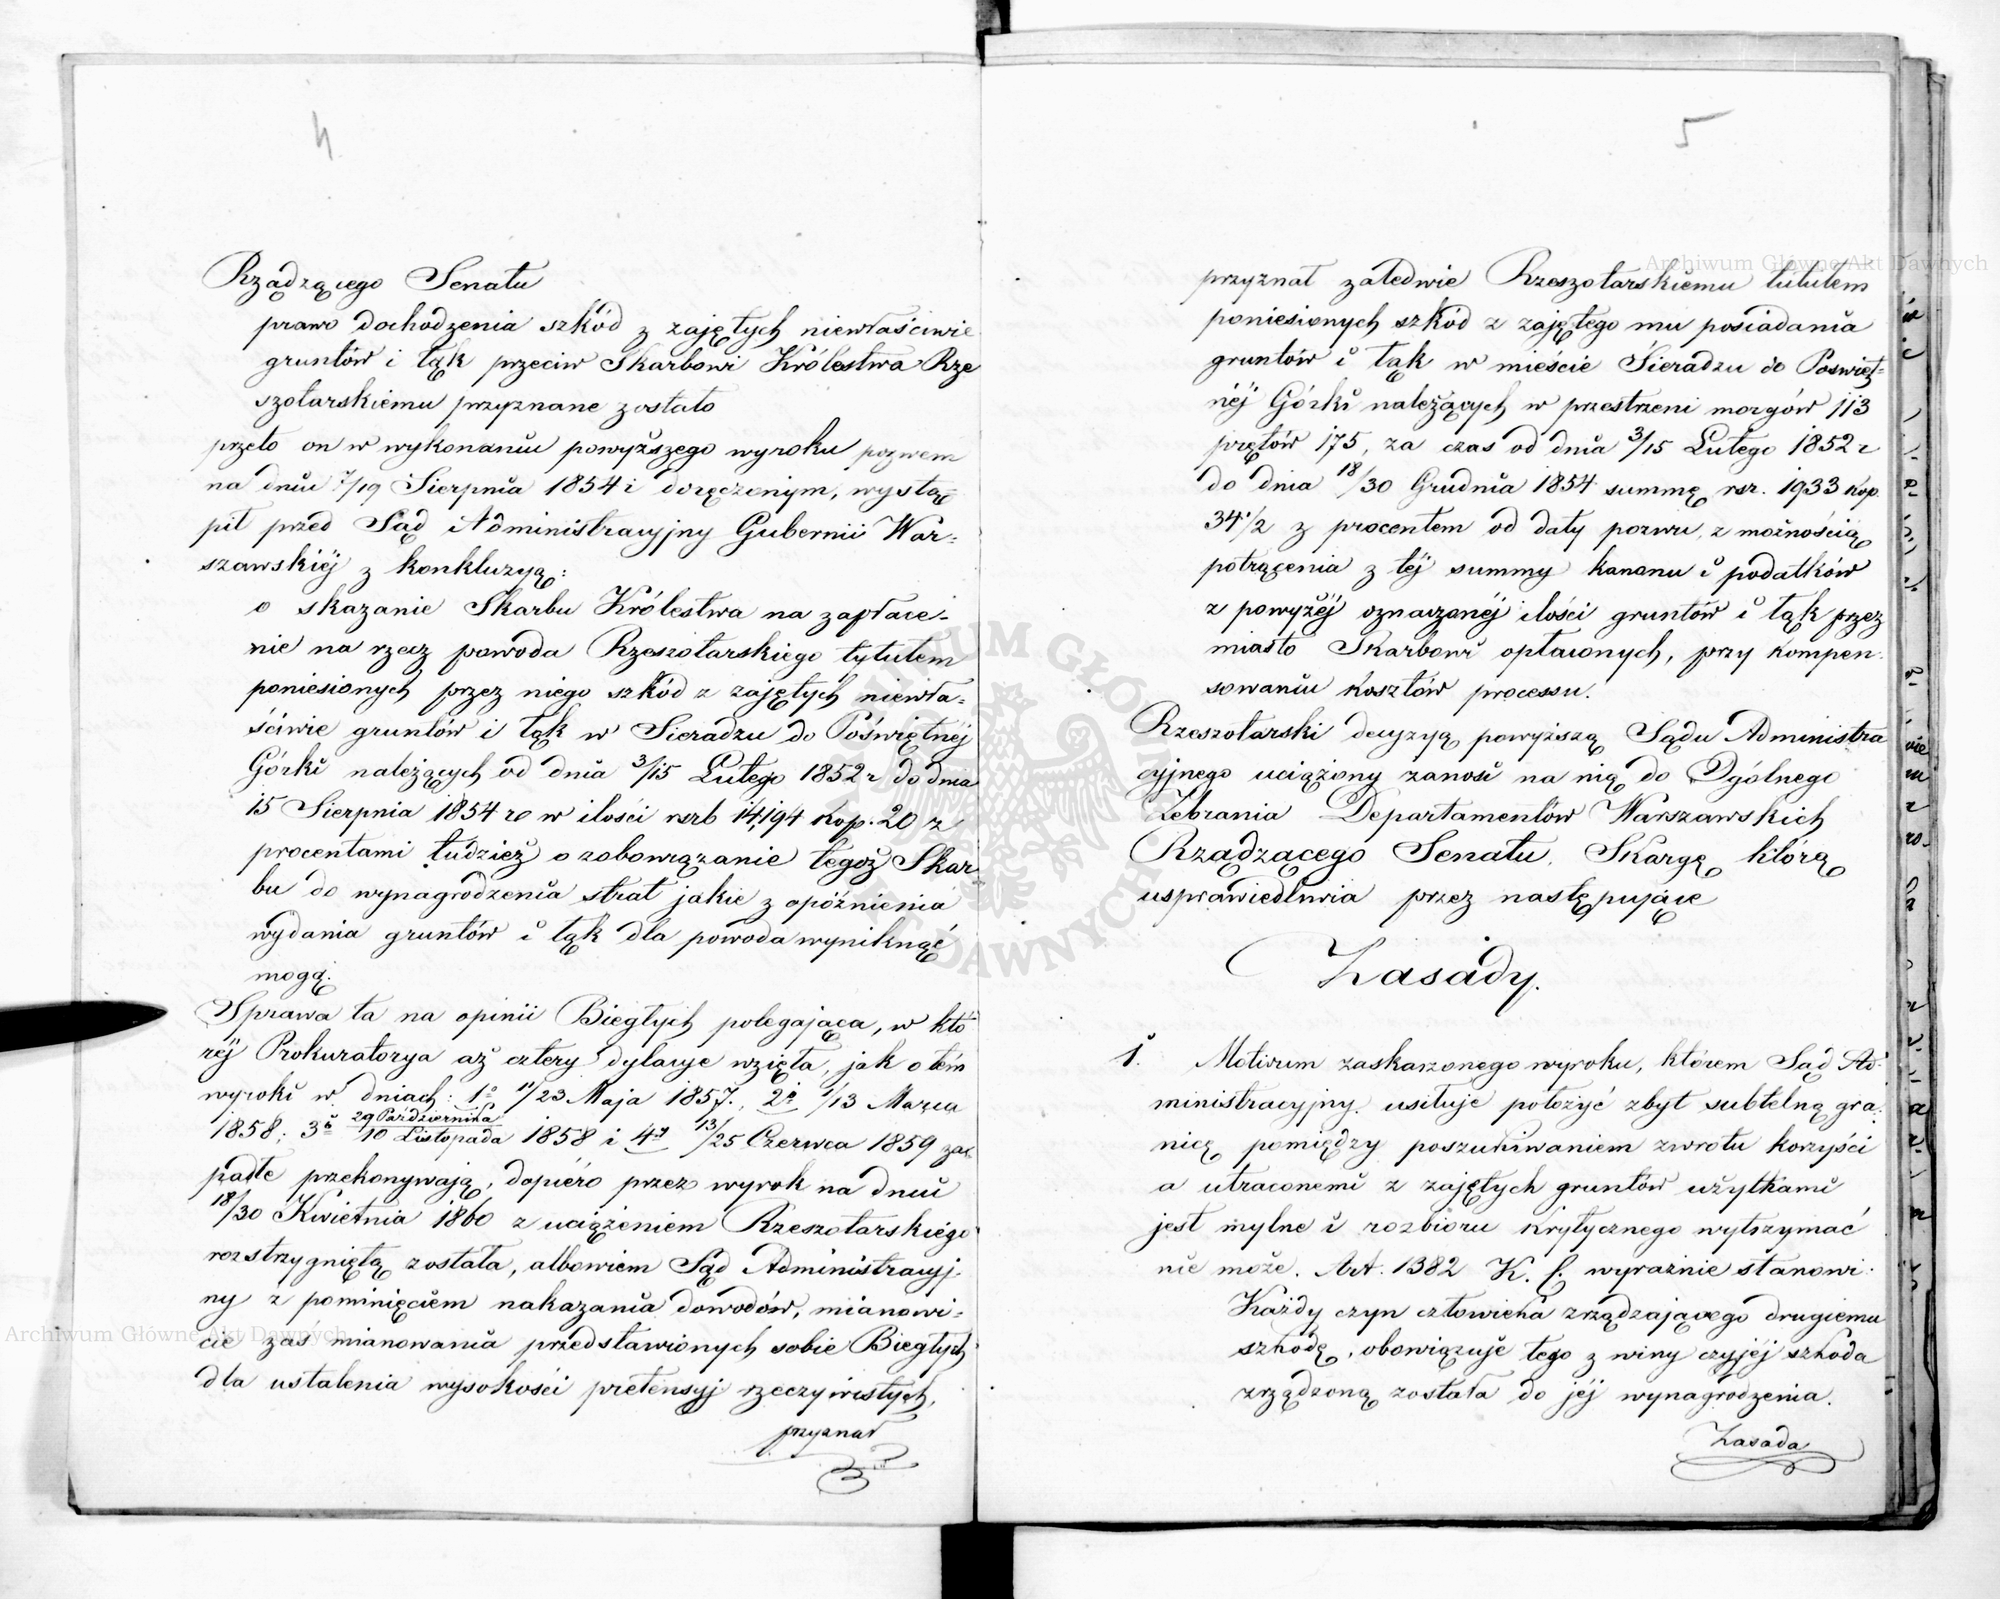 4
Rządzącego Senatu
prawo dochodzenia szkód z zajętych niewłaściwie
gruntów i łąk przeciw Skarbowi Królestwa Rze
szotarskiemu przyznane zostało
przeto on w wykonaniu powyższego wyroku pozwem
na dniu 7/19 Sierpnia 1854 i doręczonym, wystą-
pił przed Sąd Administracyjny Gubernii War-
szawskiéj z konkluzyą:
o skazanie Skarbu Królestwa na zapłace-
nie na rzecz powoda Rzeszotarskiego tytułem
poniesionych przez niego szkód z zajętych niewła-
ściwie gruntów i łąk w Sieradzu do Poświętnéj
Górki należących od dnia 3/15 Lutego 1852 r do dnia
15 Sierpnia 1854 ro w ilości rsrb 14,194 kop. 20 z
procentami tudzież o zobowiązanie tegoż Skar
bu do wynagrodzenia strat jakie z opóźnienia
wydania gruntów i łąk dla powoda wyniknąć
mogą.
Sprawa ta na opinii Biegłych polegająca, w któ
réj Prokuratorya aż cztery dylacye wzięła, jak o tém
wyroki w dniach: 1o 11/23 Maja 1857., 2o 1/13 Marca
1858; 3o 29 Października/10 Listopada 1858 i 4o 13/25 Czerwca 1859 za-
padłe przekonywają, dopiéro przez wyrok na dniu
18/30 Kwietnia 1860 z uciążeniem Rzeszotarskiégo
rozstrzygniętą została, albowiem Sąd Administracyj-
ny z pominięciem nakazania dowodów, mianowi-
cie zaś mianowania przedstawionych sobie Biegłych
dla ustalenia wysokości pretensyj rzeczywistych,
przyznał
5
przyznał zaledwie Rzeszotarskiemu tutułem
poniesionych szkód z zajętego mu posiadania
gruntów i łąk w mieście Sieradzu do Poświęt-
néj Górki należących w przestrzeni morgów 113
prętów 175, za czas od dnia 3/15 Lutego 1852 r
do dnia 18/30 Grudnia 1854 summę rsr. 1933 kop.
34 1/2 z procentem od daty pozwu, z możnością
potrącenia z téj summy kanonu i podatków
z powyżéj oznaczonéj ilości gruntów i łąk przez
miasto Skarbowi opłaconych, przy kompen-
sowaniu kosztów processu.
Rzeszotarski decyzyą powyższą Sądu Administra
cyjnego uciążony zanosi na nią do Ogólnego
Zebrania Departamentów Warszawskich
Rządzącego Senatu, Skargę, którą
usprawiedliwia przez następujące
Zasady.
1. Motivum zaskarżonego wyroku, którem Sąd Ad-
ministracyjny usiłuje położyć zbyt subtelną gra-
nicę pomiędzy poszukiwaniem zwrotu korzyści
a utraconemi z zajętych gruntów użytkami
jest mylne i rozbioru krytycznego wytrzymać
nie może. Art. 1382 K. f. wyraźnie stanowi:
Każdy czyn człowieka zrządzającego drugiemu
szkodę, obowiązuje tego z winy czyjéj szkoda
zrządzoną została do jéj wynagrodzenia.
Zasada
Archiwum Główne Akt Dawnych
Archiwum Główne Akt Dawnych
ARCHIWUM GŁÓWNE AKT DAWNYCH